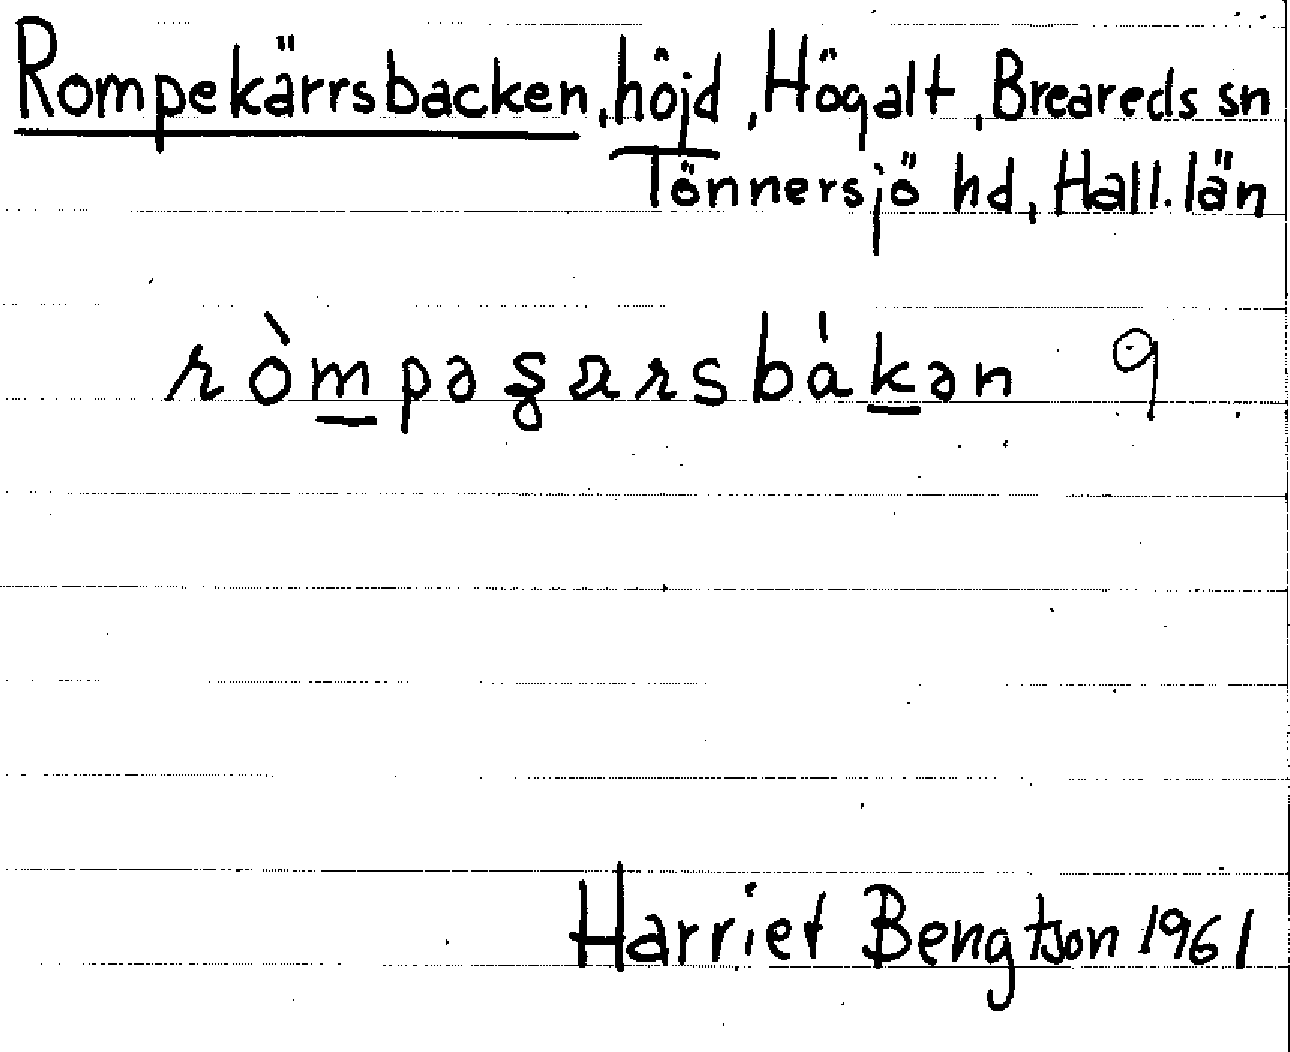 Rompekärrsbacken, höjd, Högalt, Breareds sn
Tönnersjö hd, Hall. län
ròmpəʂarsbàkən 9
Harriet Bengtson 1961